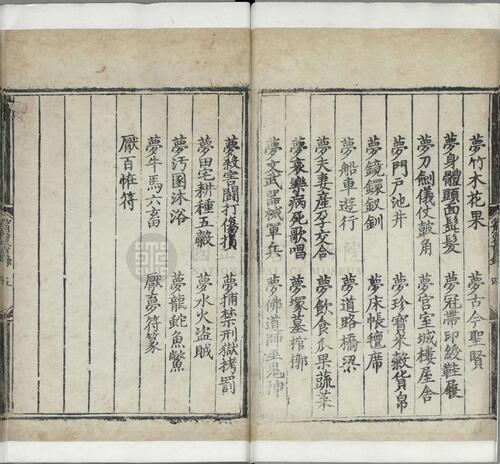 夢竹木花果 夢古今聖賢
夢身體頭面髭髪 夢冠帶印綬鞋屨
夢刀劍儀仗鼓角 夢官室城樓屋舍
夢門戸池井 夢珍寶米糓貨帛
夢鏡鐶釵釧 夢床帳氊席
夢船車遊行 夢道路橋梁
夢夫妻産孕交合 夢飲食瓜果蔬菜
夢哀樂病死歌唱 夢塚墓棺槨
夢文武器械軍兵 夢佛道師巫鬼神
夢殺害鬪打傷損 夢捕禁刑獄拷罰
夢田宅耕種五糓 夢水火盜賊
夢汚圂沐浴 夢龍蛇魚鱉
夢牛馬六畜 厭夢符篆
厭百恠符